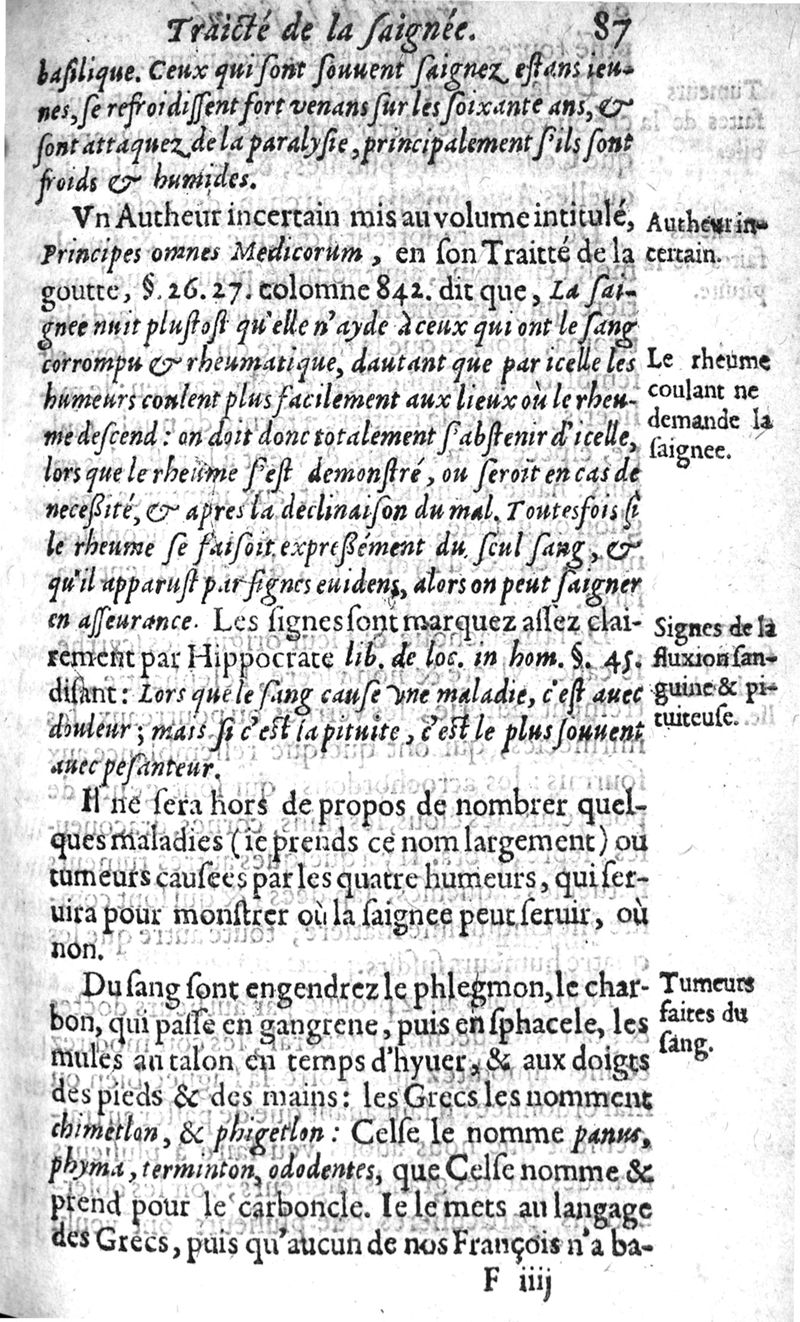 Traicté de la ſaignée. 87
baſilique. Ceux qui ſont ſouuent ſaignez eſtans ieu-
nes, ſe refroidiſſent fort venans ſur les ſoixante ans, &
ſont attaquez de la paralyſie, principalement s'ils ſont
froids & humides.
Vn Autheur incertain mis au volume intitulé,
Autheur in-
Principes omnes Medicorum, en ſon Traitté de la
certain.
goutte, §. 26. 27. colomne 842. dit que, La ſai-
gnee nuit pluſtoſt qu'elle n'ayde à ceux qui ont le ſang
corrompu & rheumatique, dautant que par icelle les
Le rheume
humeurs coulent plus facilement aux lieux où le rheu-
coulant ne
me deſcend: on doit donc totalement s'abſtenir d'icelle,
demande la
ſaignee.
lors que le rheume s'eſt demonſtré, ou ſeroit en cas de
neceßité, & apres la declinaiſon du mal. Toutesfois ſi
le rheume ſe faiſoit expreßément du ſeul ſang, &
qu'il apparuſt par ſignes euidens, alors on peut ſaigner
en aſſeurance. Les ſignes ſont marquez aſſez clai-
Signes de la
rement par Hippocrate lib. de loc. in hom. §. 45.
fluxion ſan-
diſant: Lors que le ſang cauſe vne maladie, c'eſt auec
guine & pi-
douleur; mais ſi c'eſt la pituite, c'eſt le plus ſouuent
tuiteuſe.
auec peſanteur.
Il ne ſera hors de propos de nombrer quel-
ques maladies (ie prends ce nom largement) ou
tumeurs cauſées par les quatre humeurs, qui ſer-
uira pour monſtrer où la ſaignee peut ſeruir, où
non.
Du ſang ſont engendrez le phlegmon, le char-
Tumeurs
bon, qui paſſe en gangrene, puis en ſphacele, les
faites du
ſang.
mules au talon en temps d'hyuer, & aux doigts
des pieds & des mains: les Grecs les nomment
chimetlon, & phigetlon: Celſe le nomme panus,
phyma, terminton, ododentes, que Celſe nomme &
prend pour le carboncle. Ie le mets au langage
des Grecs, puis qu'aucun de nos François n'a ba-
F iiij